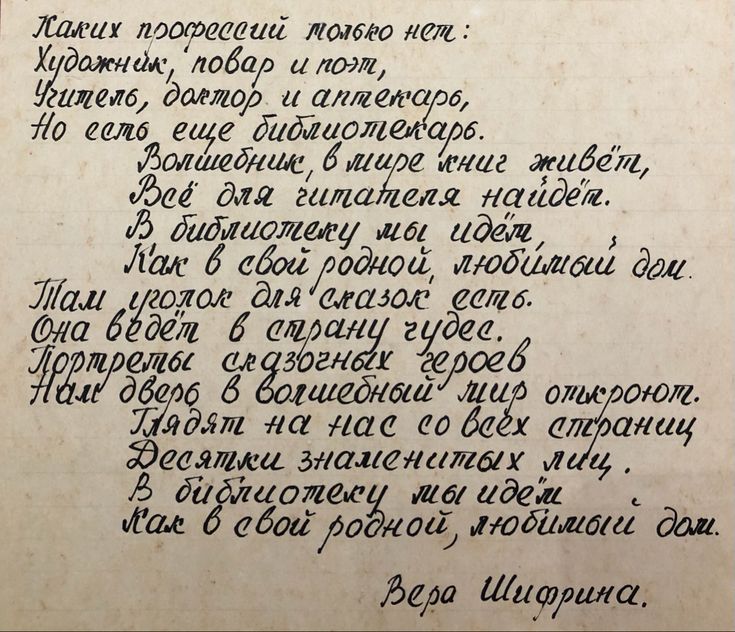 Каких профессий только нет:
Художник, повар и поэт,
Учитель, доктор и аптекарь,
Но есть еще библиотекарь.
Волшебник, в мире книг живёт,
Всё для читателя найдёт.
В библиотеку мы идём,
Как в свой родной, любимый дом.
Там уголок для сказок есть.
Она ведёт в страну чудес.
Портреты сказочных героев
Нам дверь в волшебный мир откроют.
Глядят на нас со всех страниц
Десятки знаменитых лиц.
В библиотеку мы идём
Как в свой родной, любимый дом.
Вера Шифрина.